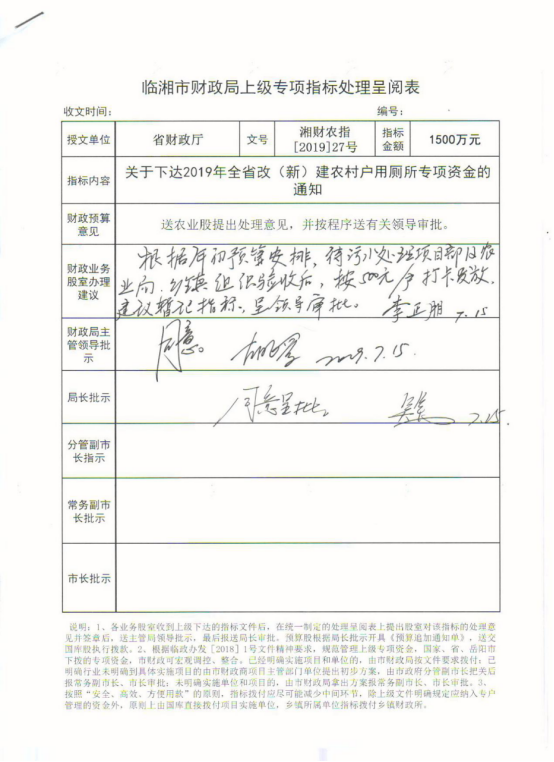 临湘市财政局上级专项指标处理呈阅表
收文时间： 编号：
授文单位 省财政厅 文号 湘财农指[2019]27号 指标金额 1500万元
指标内容 关于下达2019年全省改（新）建农村户用厕所专项资金的
通知
财政预算
意见 送农业股提出处理意见，并按程序送有关领导审批。
财政业务
股室办理
建议
根据年初预算安排，待污水处理项目部及农
业局、乡镇组织验收后，按500元/户打卡发放。
建议暂记指标，呈领导审批。 李正明 7.15
财政局主
管领导批
示
同意。 2019.7.15.
局长批示 同意呈批。 7.15.
分管副市
长指示
常务副市
长批示
市长批示
说明：1、各业务股室收到上级下达的指标文件后，在统一制定的处理呈阅表上提出股室对该指标的处理意
见并签章后，送主管局领导批示，最后报送局长审批。预算股根据局长批示开具《预算追加通知单》，送交
国库股执行拨款。2、根据临政办发【2018】1号文件精神要求，规范管理上级专项资金，国家、省、岳阳市
下拨的专项资金，市财政可宏观调控、整合。已经明确实施项目和单位的，由市财政局按文件要求拨付；已
明确行业未明确到具体实施项目的由市财政商项目主管部门单位提出初步方案，由市政府分管副市长把关后
报常务副市长、市长审批；未明确实施单位和项目的，由市财政局拿出方案报常务副市长、市长审批。3、
按照“安全、高效、方便用款”的原则，指标拨付应尽可能减少中间环节，除上级文件明确规定应纳入专户
管理的资金外，原则上由国库直接拨付项目实施单位，乡镇所属单位指标拨付乡镇财政所。